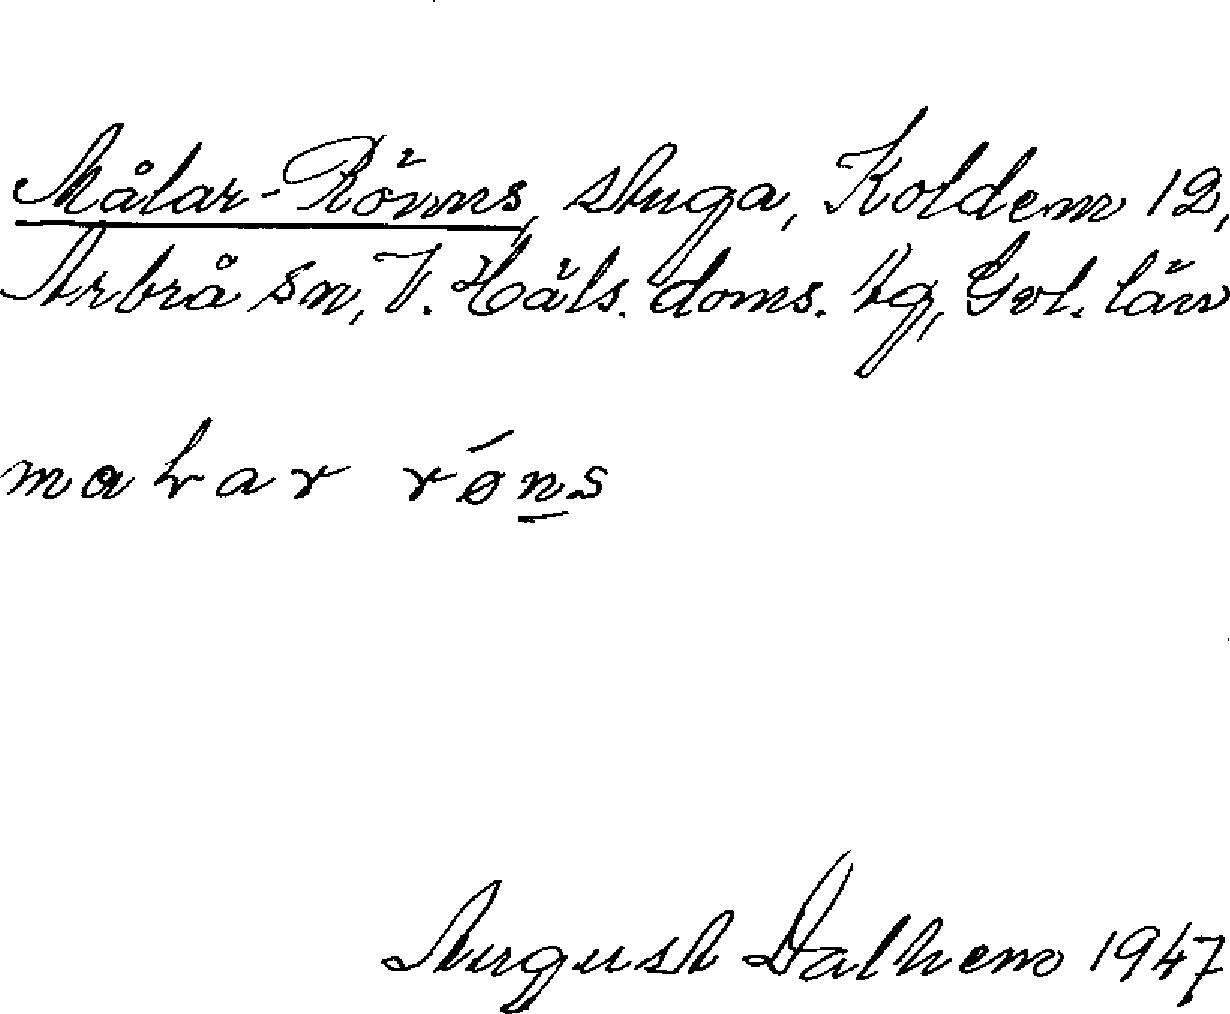 Målar-Rönns, stuga, Koldem 12,
Arbrå sn, V. Häls. doms. tg, Gvl. län
marar róns
August Dalhem 1947